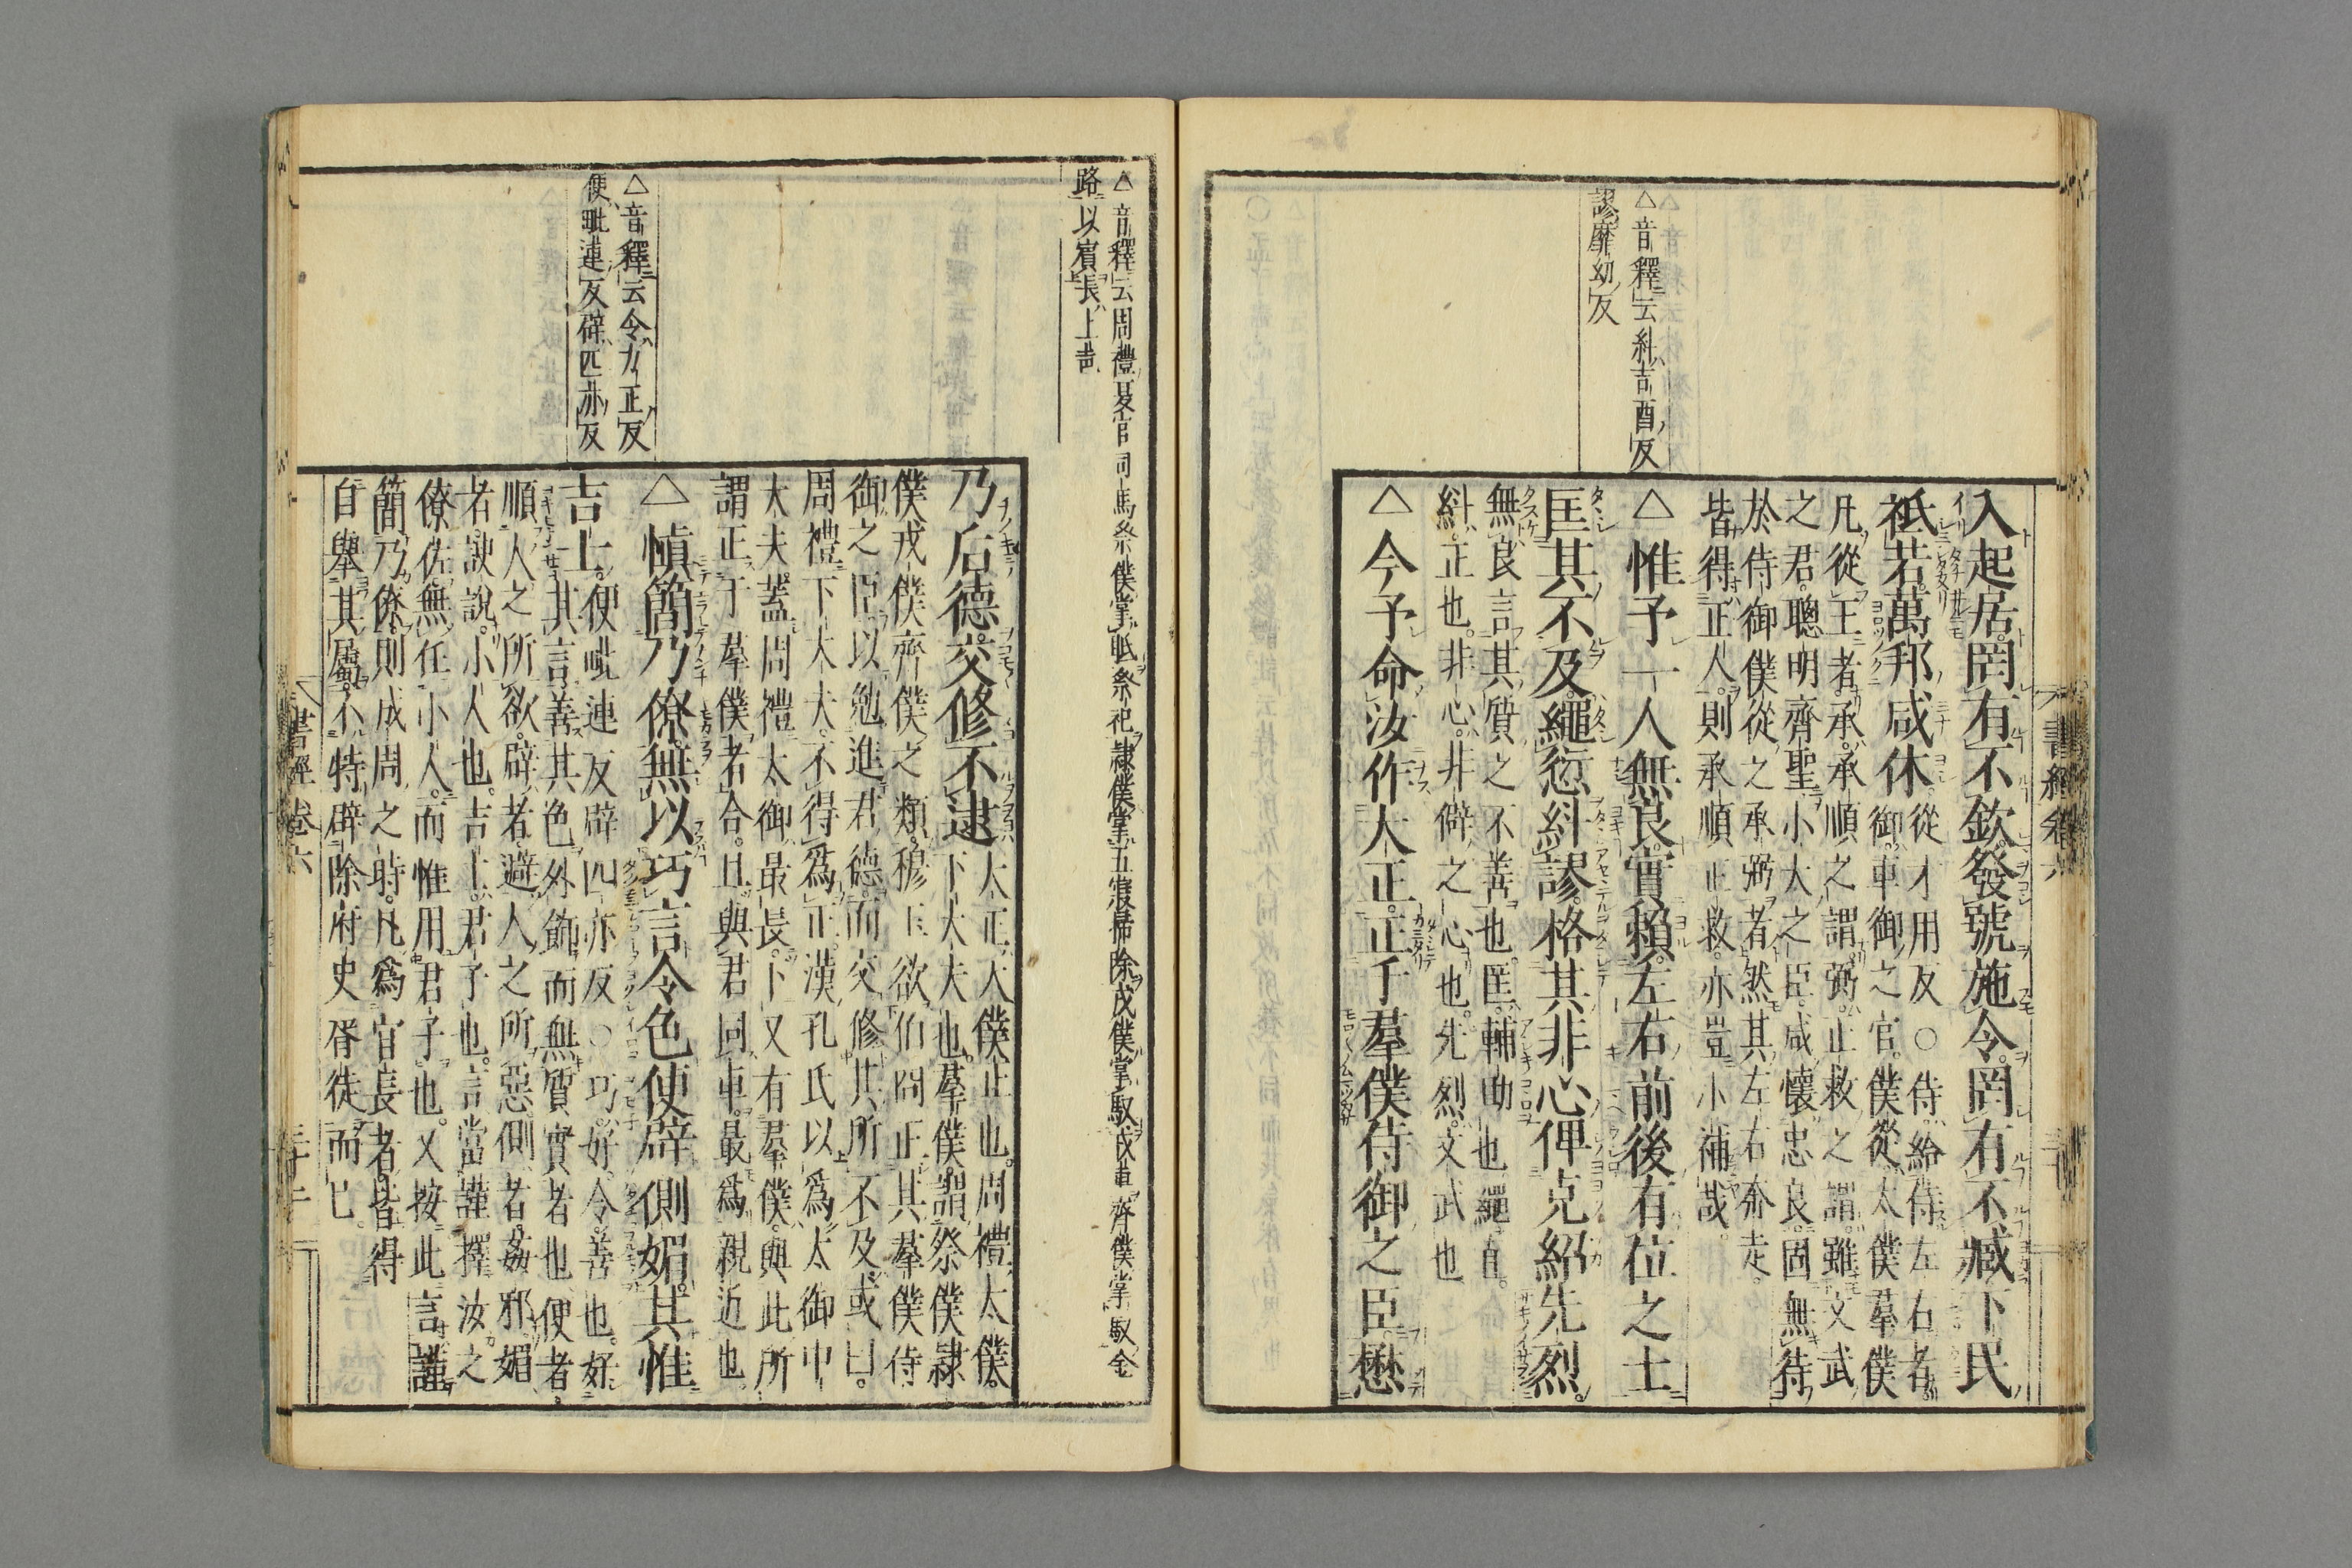 入起居。罔有不欽。發號施令。罔有不臧。下民
祗若。萬邦咸休。
從才用反○侍。給侍左右者。
御。車御之官。僕從。太僕羣僕
凡從王者。承。承順之謂。弼。正救之謂。雖文武
之君。聰明齊聖。小大之臣。咸懷忠良。固無待
於侍御僕從之承弼者。然其左右奔走。
皆得正人。則承順正救。亦豈小補哉。
△惟予一人無良。實賴左右前後有位之士。
匡其不及。繩愆糾謬。格其非心。俾克紹先烈。
無良。言其質之不善也。匡。輔助也。繩。直。
糾。正也。非心。非僻之心也。先烈。文武也
△今予命汝作大正。正于羣僕侍御之臣。懋
△音釋云糾吉酉反
謬靡幼反
△音釋云周禮夏官司馬祭僕掌眡祭祀隸僕掌五寢掃除戎僕掌馭戎車齊僕掌馭金
路以賓長上声
乃后德。交修不逮
大正。大僕正也。周禮。太僕。
下大夫也。羣僕。謂祭僕隸
僕戎僕齊僕之類。穆王欲伯冏正其羣僕侍
御之臣。以勉進君德。而交修其所不及。或曰。
周禮。下大夫。不得爲正。漢孔氏以爲太御中
大夫。蓋周禮。太御最長。下又有羣僕。與此所
謂正于羣僕者合。且與君同車。最爲親近也
△慎簡乃僚。無以巧言令色便辟側媚。其惟
吉士。
便毗連反辟匹亦反○巧。好。令。善也。好
其言。善其色。外飾而無質實者也。便者。
順人之所欲。辟者。避人之所惡。側者。姦邪。媚
者。諛說。小人也。吉士。君子也。言當謹擇汝之
僚佐。無任小人。而惟用君子也。又按此言謹
簡乃僚。則成周之時。凡爲官長者。皆得
自舉其屬。不特辟除府史胥徒而已。
△音釋云令力正反
便毗連反辟匹亦反
書經卷六
三十二